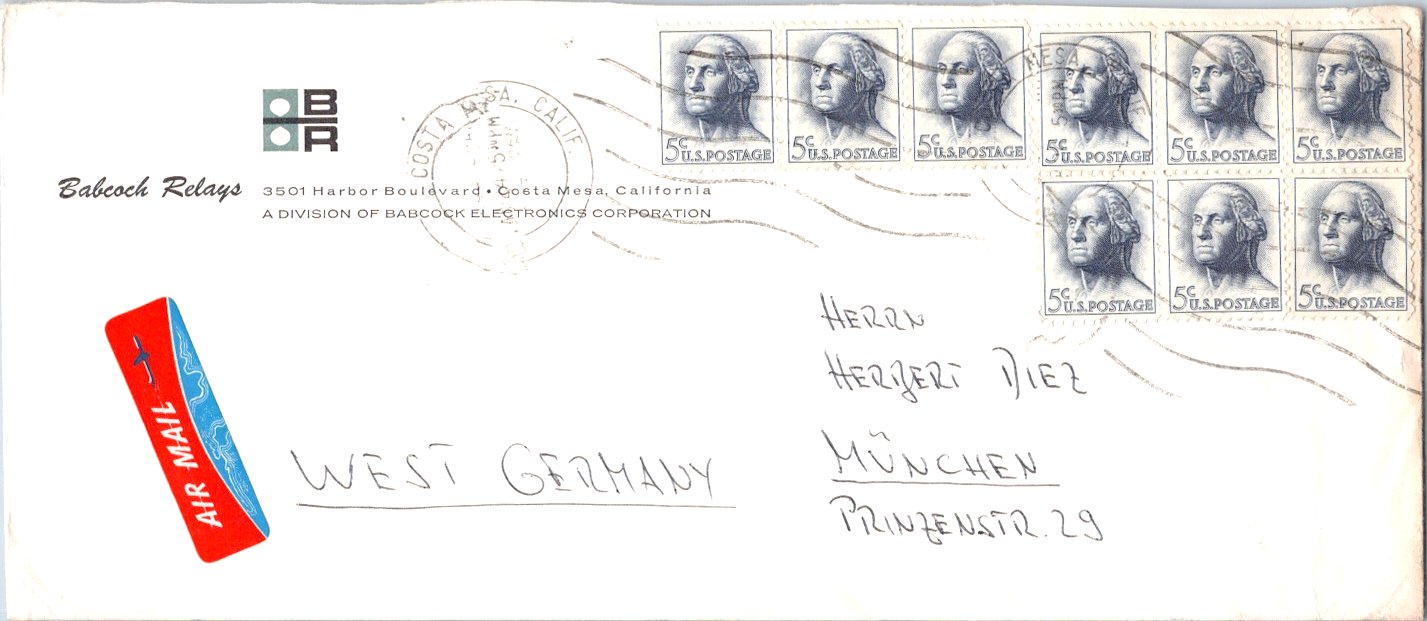 B
R
Babcock Relays
3501 Harbor Boulevard • Costa Mesa, California
A DIVISION OF BABCOCK ELECTRONICS CORPORATION
COSTA MESA, CALIF.
5 PM
MESA
5 PM
5c U.S. POSTAGE
5c U.S. POSTAGE
5c U.S. POSTAGE
5c U.S. POSTAGE
5c U.S. POSTAGE
5c U.S. POSTAGE
5c U.S. POSTAGE
5c U.S. POSTAGE
5c U.S. POSTAGE
AIR MAIL
WEST GERMANY
HERRN
HERBERT DIEZ
MÜNCHEN
PRINZENSTR. 29